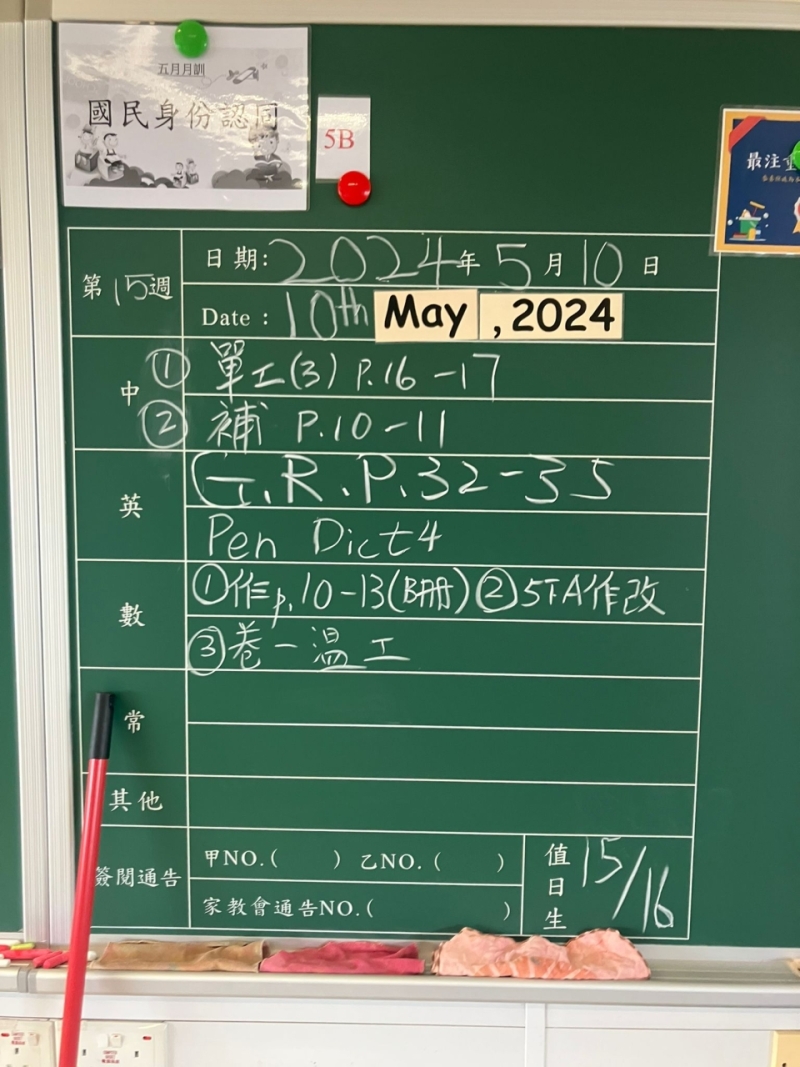 五月月訓
國民身份認同
5B
最注重
第15週
日期:2024年5月10日
Date : 10th May , 2024
中
① 單工(3) P.16-17
② 補 P.10-11
英
G.R.P.32-35
Pen Dict4
數
①作p.10-13(B冊)②5TA作改
③卷一溫工
常
其他
簽閱通告
甲NO.( ) 乙NO.( )
家教會通告NO.( )
值日生
15/16